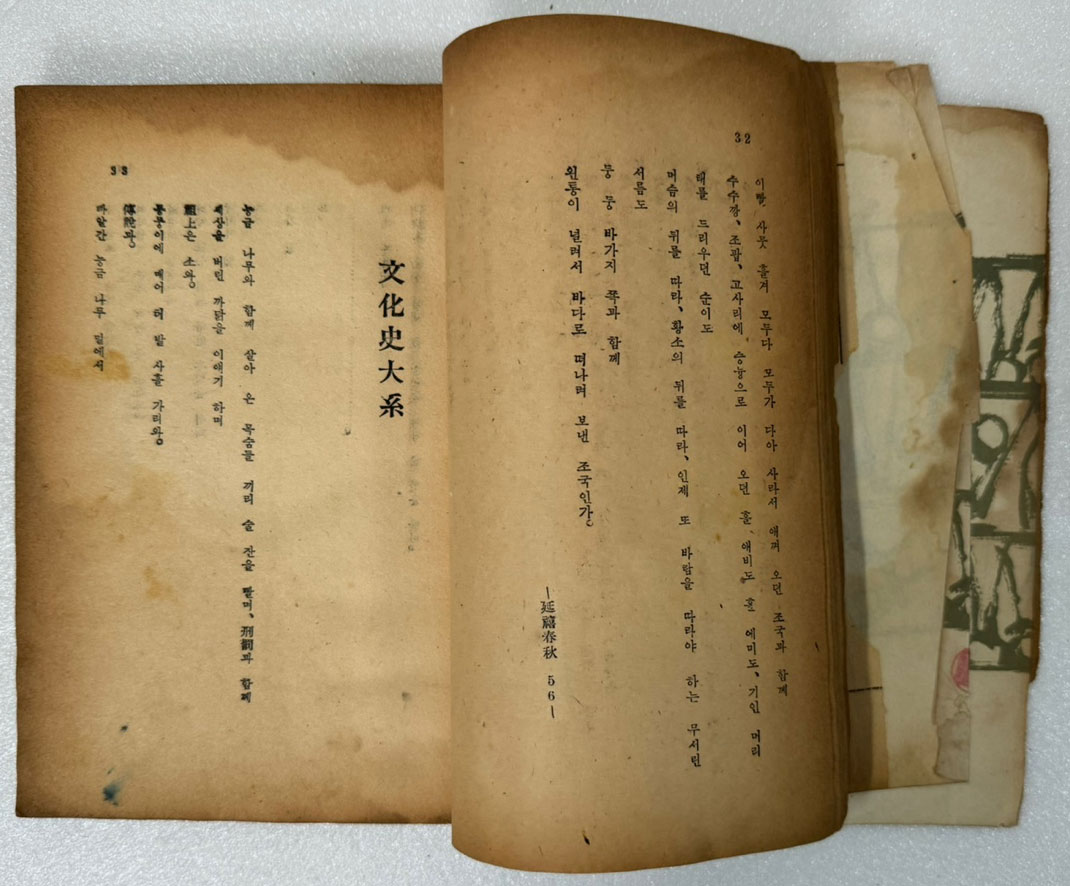 32
이빨 사뭇 흘겨 모두다 모두가 다아 사라서 애끼 오던 조국과 함께
수수깡、조팝、고사리에 숭늉으로 이어 오던 흘 애비도 홀 에미도、기인 머리
태를 드리우던 순이도
머슴의 뒤를 따라、황소의 뒤를 따라、인제 또 바람을 따라야 하는 무서린
서름도
둥 둥 바가지 쪽과 함께
원통이 널려서 바다로 떠나려 보낸 조국인가。
—延禧春秋 56—
33
文化史大系
능금 나무와 함께 살아 온 목숨들 끼리 술 잔을 빨며、刑罰과 함께
세상을 버린 까닭을 이얘기 하며
祖上은 소와。
몽뚱이에 메어 려 말 사흘 가리와。
傳說과。
빠알간 능금 나무 밑에서